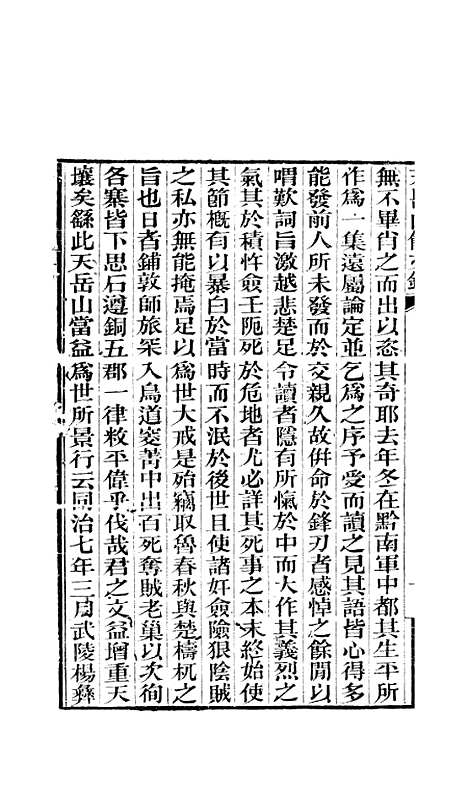 無不畢肖之而出以恣其奇耶去年冬在黔南軍中都其生平所
作爲一集遠屬論定並乞爲之序予受而讀之見其語皆心得多
能發前人所未發而於交親久故倂命於鋒刃者感悼之餘閒以
喟歎詞旨激越悲楚足令讀者隱有所愾於中而大作其義烈之
氣其於積忤僉壬阨死於危地者尤必詳其死事之本末終始使
其節槪有以暴白於當時而不泯於後世且使諸奸僉險狠陰賊
之私亦無能掩焉足以爲世大戒是殆竊取魯春秋與楚檮杌之
旨也日者鋪敦師旅罙入鳥道窔菁中出百死奪賊老巢以次徇
各寨皆下思石遵銅五郡一律敉平偉乎伐哉君之文益增重天
壤矣繇此天岳山當益爲世所景行云同治七年三月武陵楊彝